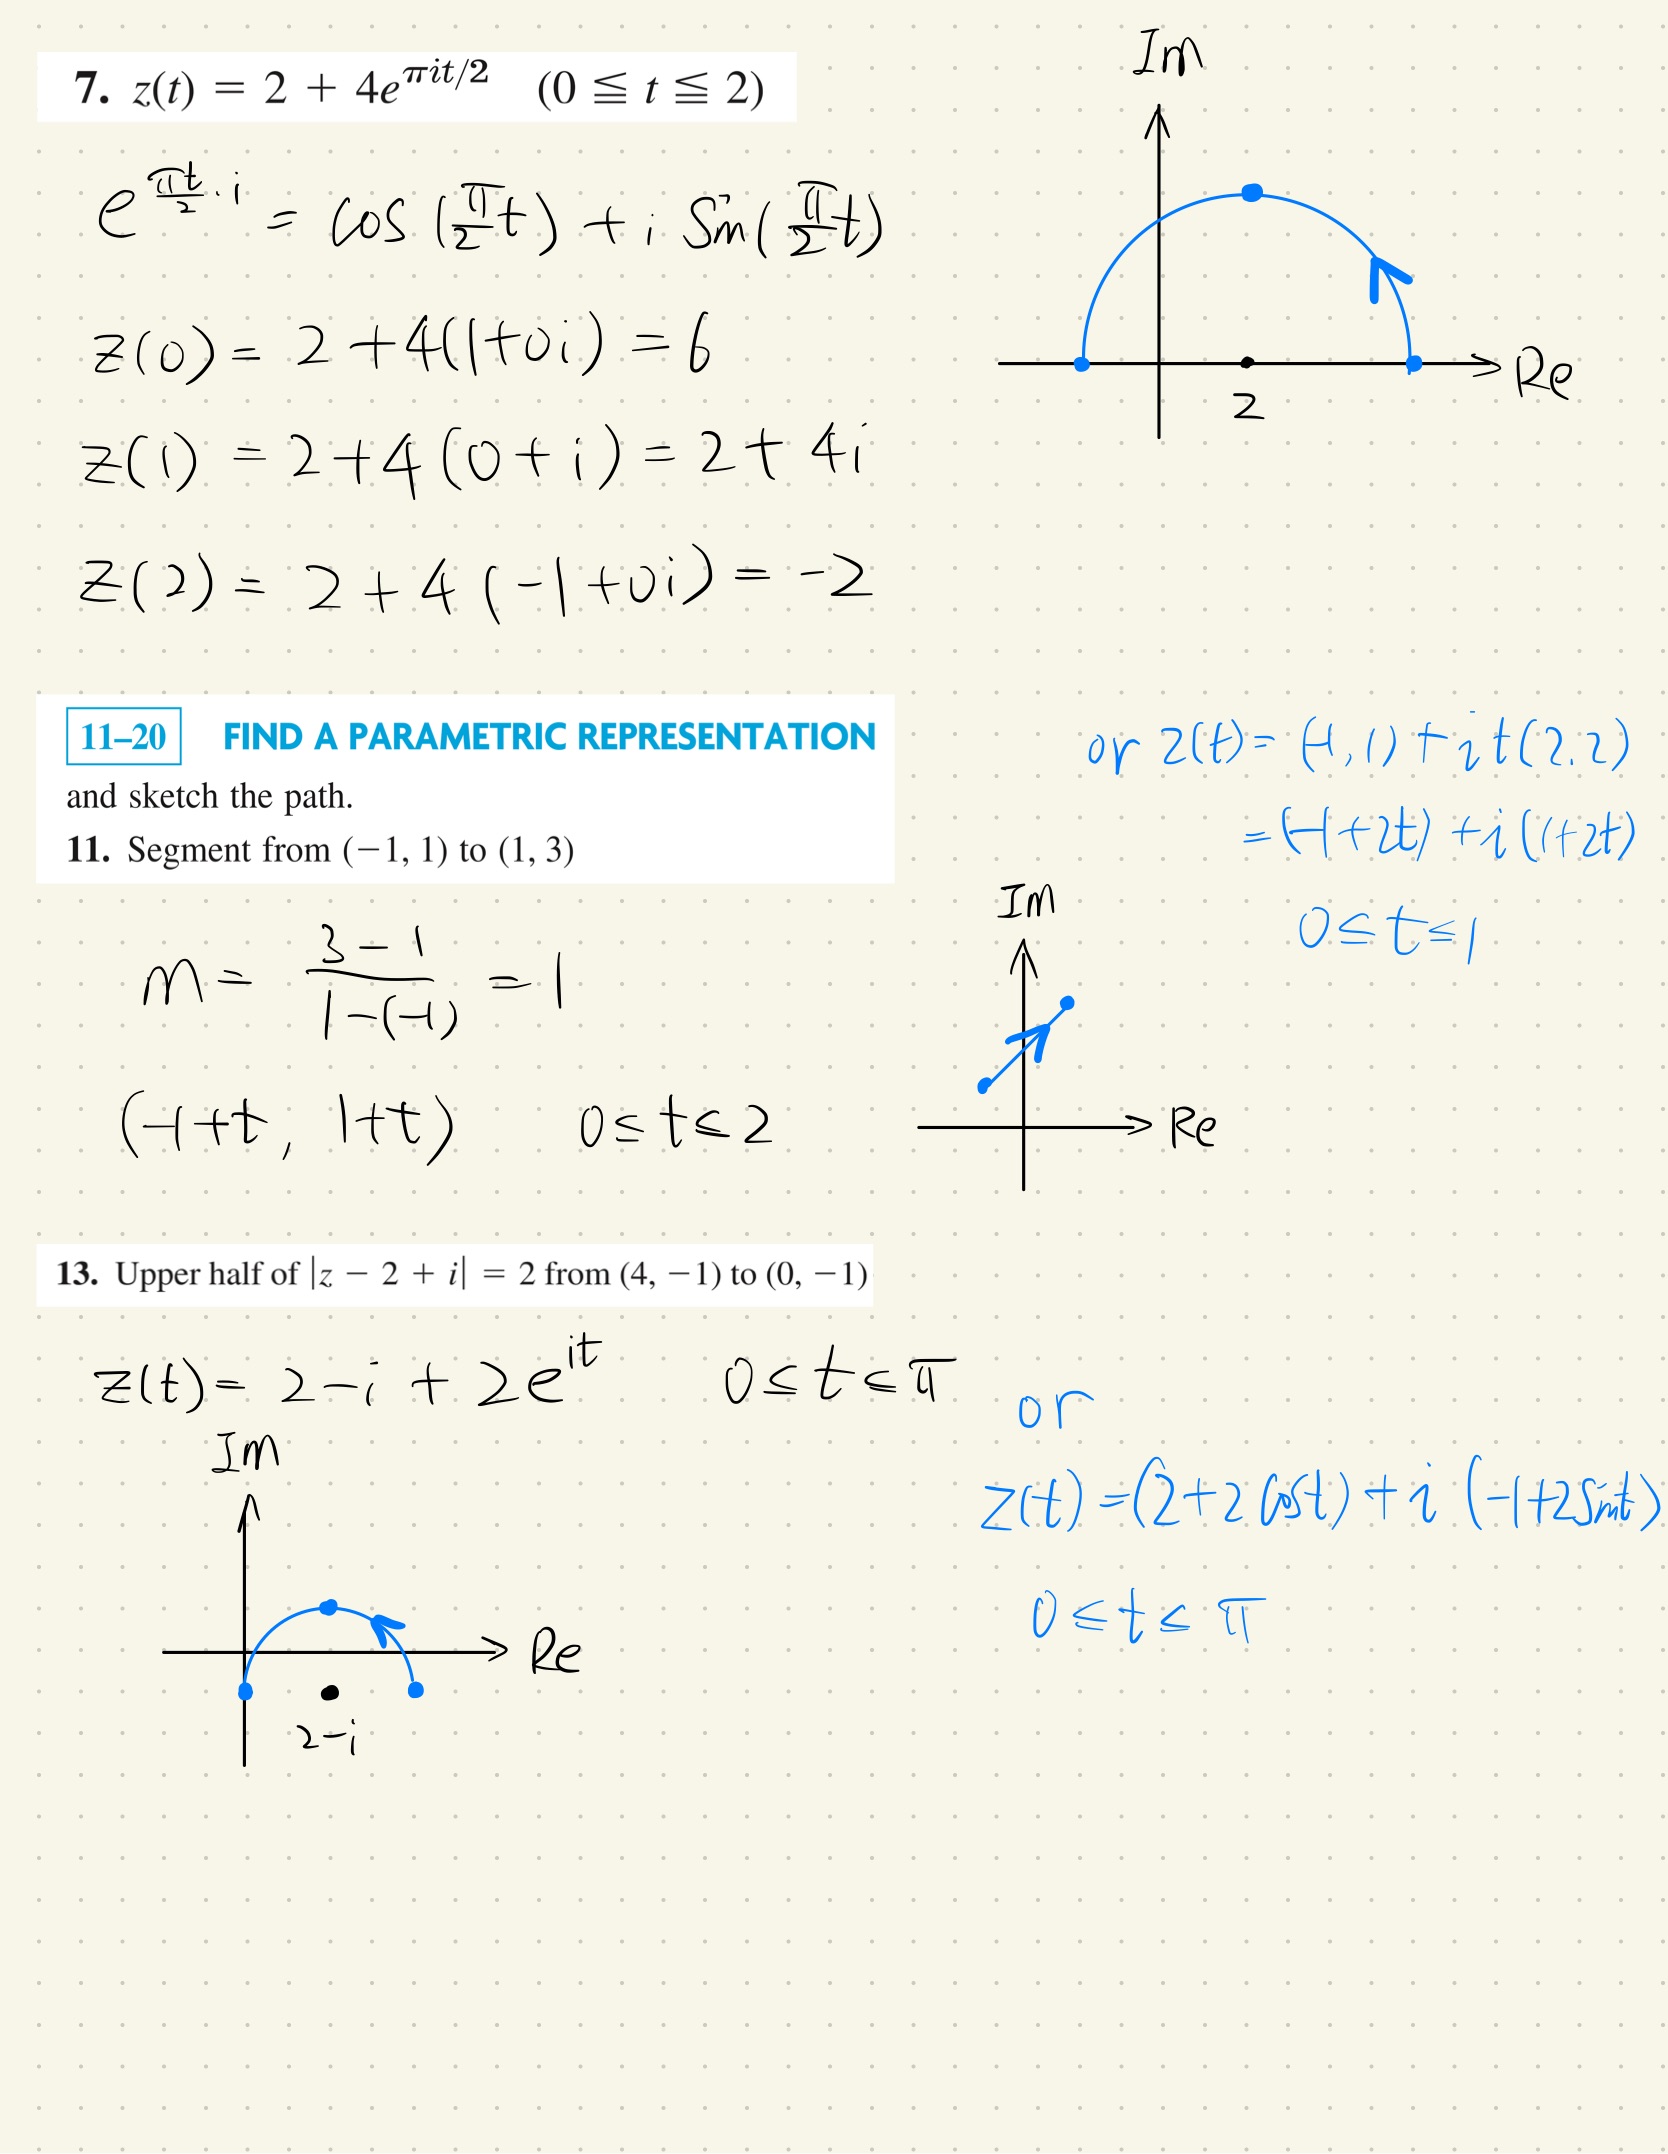 Im
7. z(t) = 2 + 4e^{πit/2} (0 ≦ t ≦ 2)
e^{\frac{πt}{2}·i} = cos(\frac{π}{2}t) + i Sin(\frac{π}{2}t)
z(0) = 2+4(1+0i) = 6
Re
2
z(1) = 2+4(0+i) = 2+4i
z(2) = 2+4(-1+0i) = -2
11–20 FIND A PARAMETRIC REPRESENTATION
and sketch the path.
11. Segment from (−1, 1) to (1, 3)
or z(t) = (-1,1) + i t(2.2)
= (-1+2t) + i(1+2t)
0 ≤ t ≤ 1
m = \frac{3-1}{1-(-1)} = 1
(-1+t, 1+t) 0 ≤ t ≤ 2
Im
Re
13. Upper half of |z − 2 + i| = 2 from (4, −1) to (0, −1)
z(t) = 2-i + 2e^{it} 0 ≤ t ≤ π
or
z(t) = (2+2cost) + i(-1+2sint)
0 ≤ t ≤ π
Im
Re
2-i